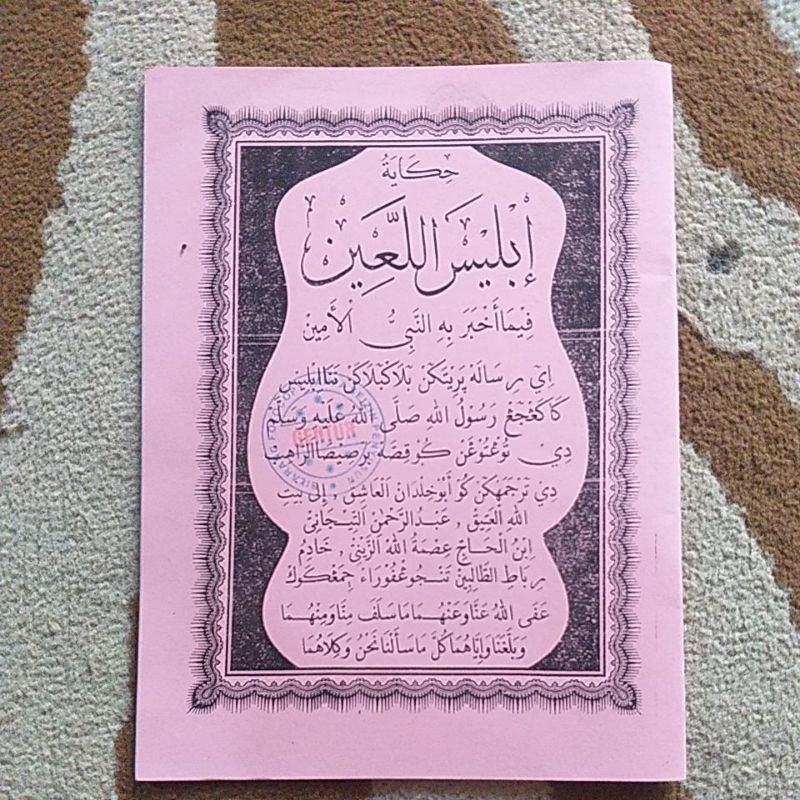 حِكَايَةُ
إِبْلِيسَ اللَّعِين
فِيمَا أَخْبَرَ بِهِ النَّبِيُّ الْأَمِين
اِيْ رِسَالَهْ پَرْيَتَكَنْ بْلَاكْبَلَاكَنْ تَنَا اِبْلِيس
كَا كَڠْجَڠْ رَسُولُ اللهِ صَلَّى اللهُ عَلَيْهِ وَسَلَّمْ
دِيْ تُوْڠْتُوْڠَنْ كُوْ قِصَّةْ بَرْصِيصَا الرَّاهِب
دِيْ تَرْجَمَهْكَنْ كُو أَبُوْ خِلْدَانَ الْعَاشِقْ ، إِلَى بَيْتِ
اللهِ الْعَتِيقْ ، عَبْدُ الرَّحْمٰنْ التِّيجَانِيْ
اِبْنُ الْحَاجِّ عِصْمَةُ اللهِ الزَّيْنِيْ ، خَادِمُ
رِبَاطِ الطَّالِبِيْنَ تَنْجُوڠْفُوْرَاءْ جِمَعْكُوكْ
عَفَى اللهُ عَنَّا وَعَنْهُمَا مَا سَلَفَ مِنَّا وَمِنْهُمَا
وَبَلَّغَنَا وَإِيَّاهُمَا كُلَّ مَا سَأَلْنَا نَحْنُ وَكِلَاهُمَا
GENTUR